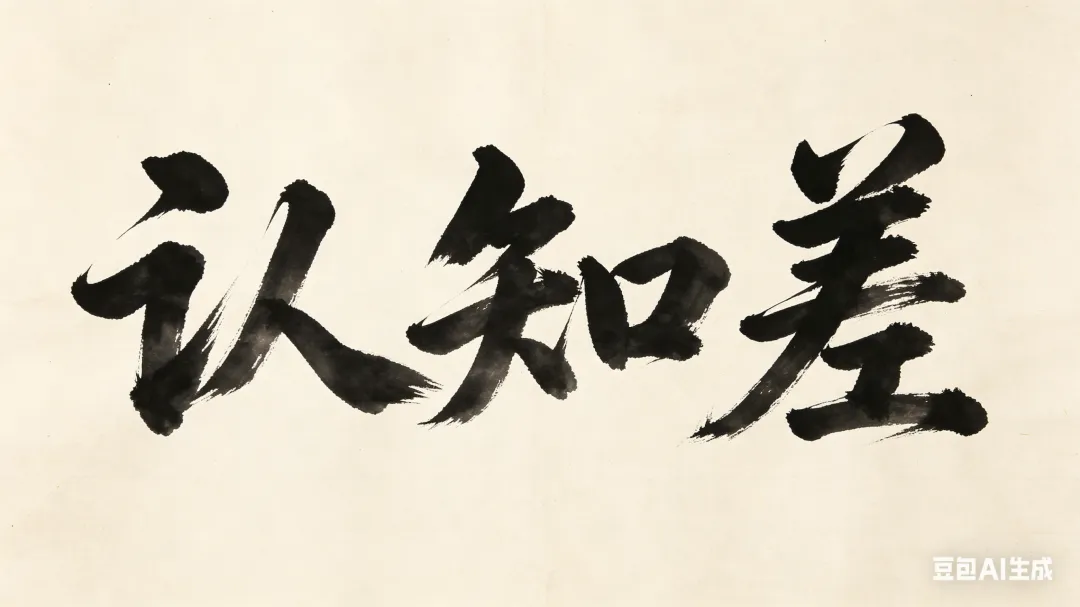 认知差
豆包AI生成